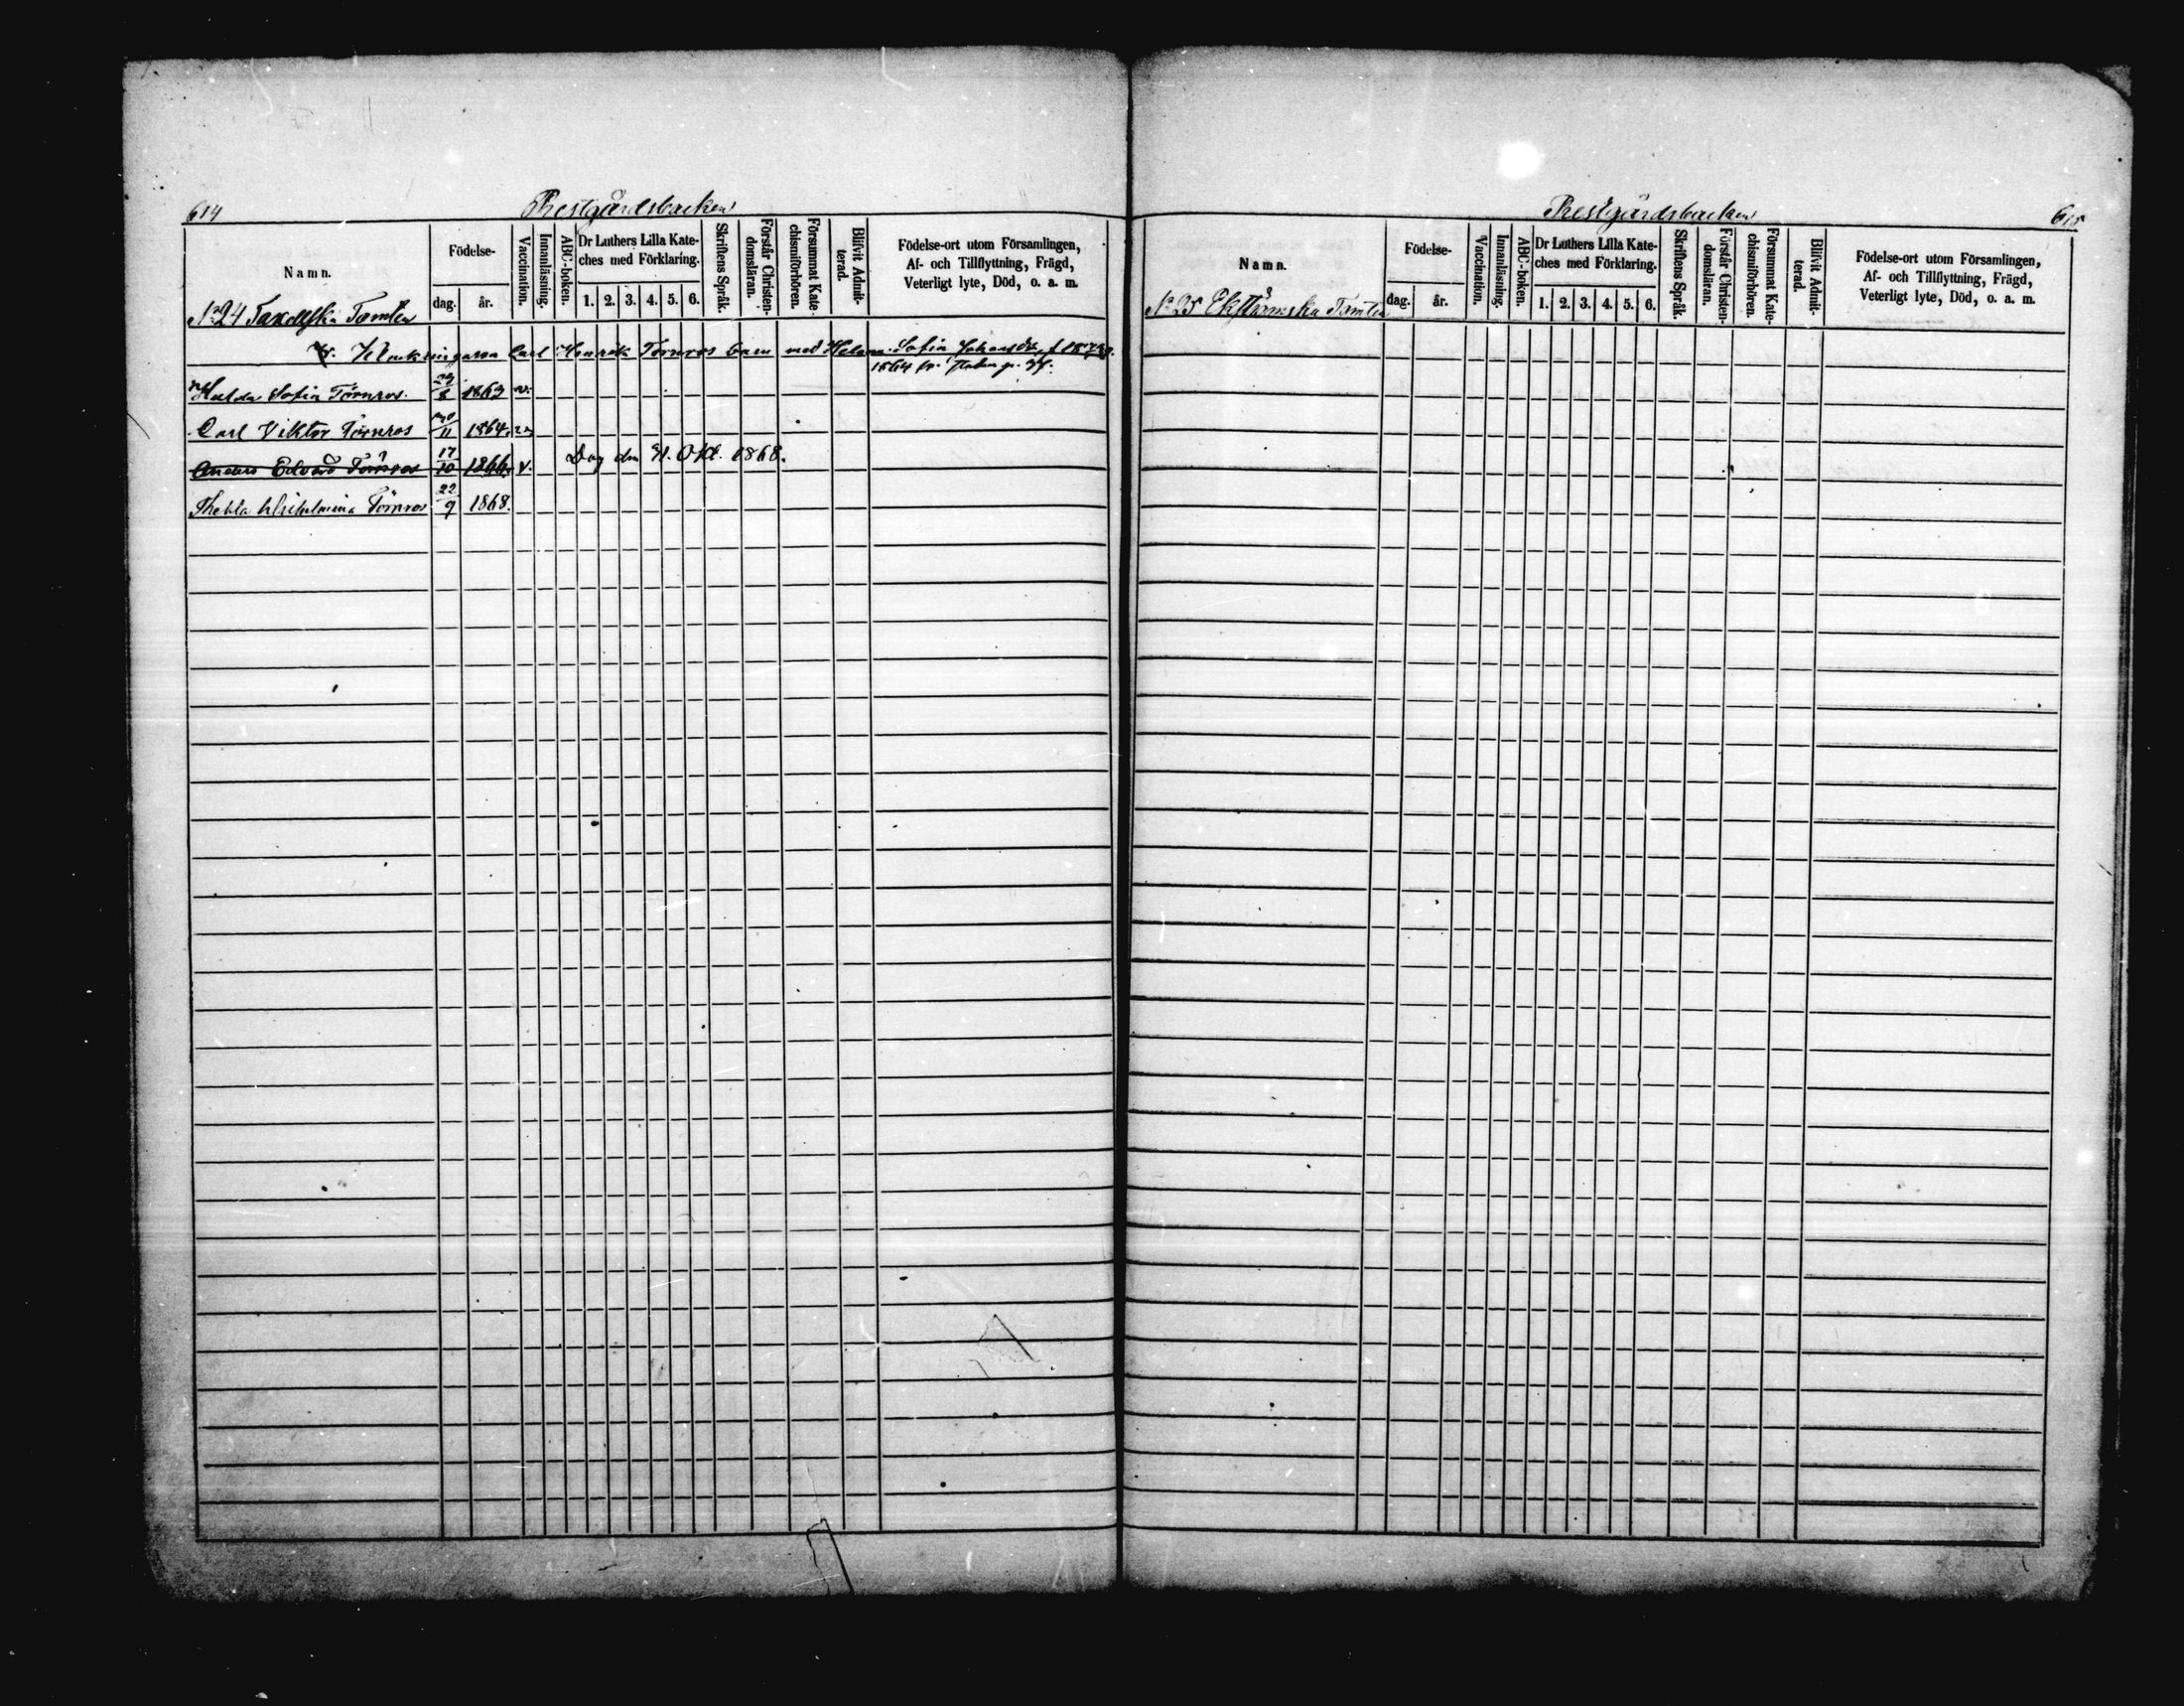 614
Prestgårdsbacken
Namn.
Födelse-
dag.
år.
Vaccination.
Innanläsning.
ABC-boken.
Dr Luthers Lilla Kate-
ches med Förklaring.
1. 2. 3. 4. 5. 6.
Skriftens Språk.
Förstår Christen-
domsläran.
Försummat Kate-
chismiförhören.
Blifvit Admit-
terad.
Födelse-ort utom Församlingen,
Af- och Tillflyttning, Frägd,
Veterligt lyte, Död, o. a. m.
No 24 Tomten
Carl Henrik Törnros barn med Helena Sofia
1864 fr.
Hulda Sofia Törnros. 1863 v.
Carl Viktor Törnros 11 1864
Anders Edvard Törnros 17/10 1866 v. Dog den 31. Okt. 1868.
Thekla Wilhelmina Törnros 22/9 1868.
Prestgårdsbacken
615
Namn.
Födelse-
dag.
år.
Vaccination.
Innanläsning.
ABC-boken.
Dr Luthers Lilla Kate-
ches med Förklaring.
1. 2. 3. 4. 5. 6.
Skriftens Språk.
Förstår Christen-
domsläran.
Försummat Kate-
chismiförhören.
Blifvit Admit-
terad.
Födelse-ort utom Församlingen,
Af- och Tillflyttning, Frägd,
Veterligt lyte, Död, o. a. m.
No 25 Ekströmska Tomten